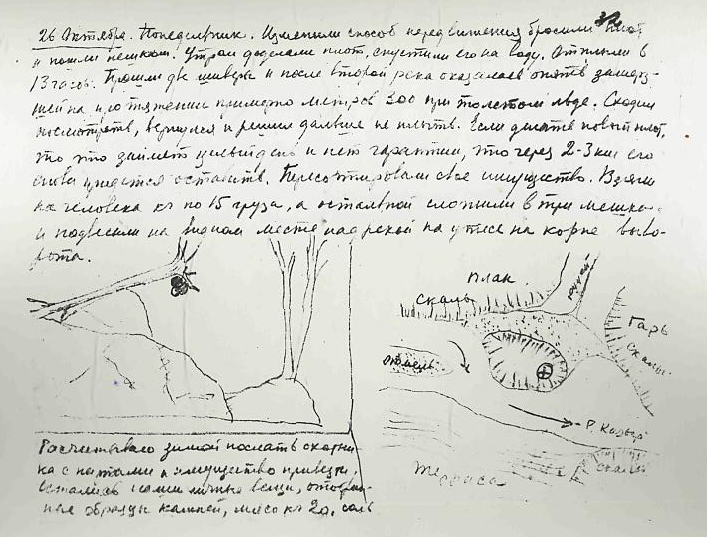 26 Октября. Понедельник. Изменили способ передвижения бросили плот
и пошли пешком. Утром доделали плот, спустили его на воду. Отплыли в
13 часов. Прошли две шиверы и после второй река оказалась опять замерз-
шей на протяжении примерно метров 300 при толстом льде. Сходили
посмотреть, вернулся и решил дальше не плыть. Если делать новый плот,
то это займет целый день и нет гарантии, что через 2-3 км его
снова придется оставить. Пересортировали свое имущество. Взяли
на человека кг по 15 груза, а остальной сложили в три мешка
и подвесили на видном месте над рекой на утесе на корне выво-
рота.
План
скалы
ручей
Гарь
скалы
Р.
скалы
Терраса
Расчитываю зимой послать охотни-
ка с нартами и имущество привезти.
Остались наши личные вещи, отобран-
ные образцы камней, мясо кг 20, соль